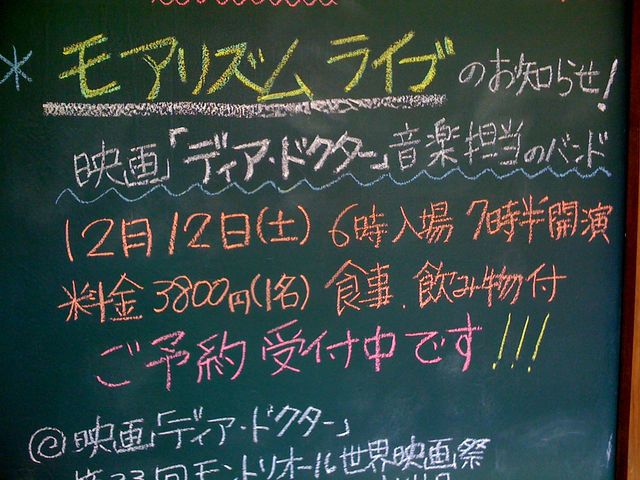 ＊モアリズム ライブのお知らせ!
映画「ディア・ドクター」音楽担当のバンド
12月12日(土) 6時入場 7時半開演
料金3800円(1名) 食事.飲み物付
ご予約受付中です!!!
@映画「ディア・ドクター」
第33回モントリオール世界映画祭